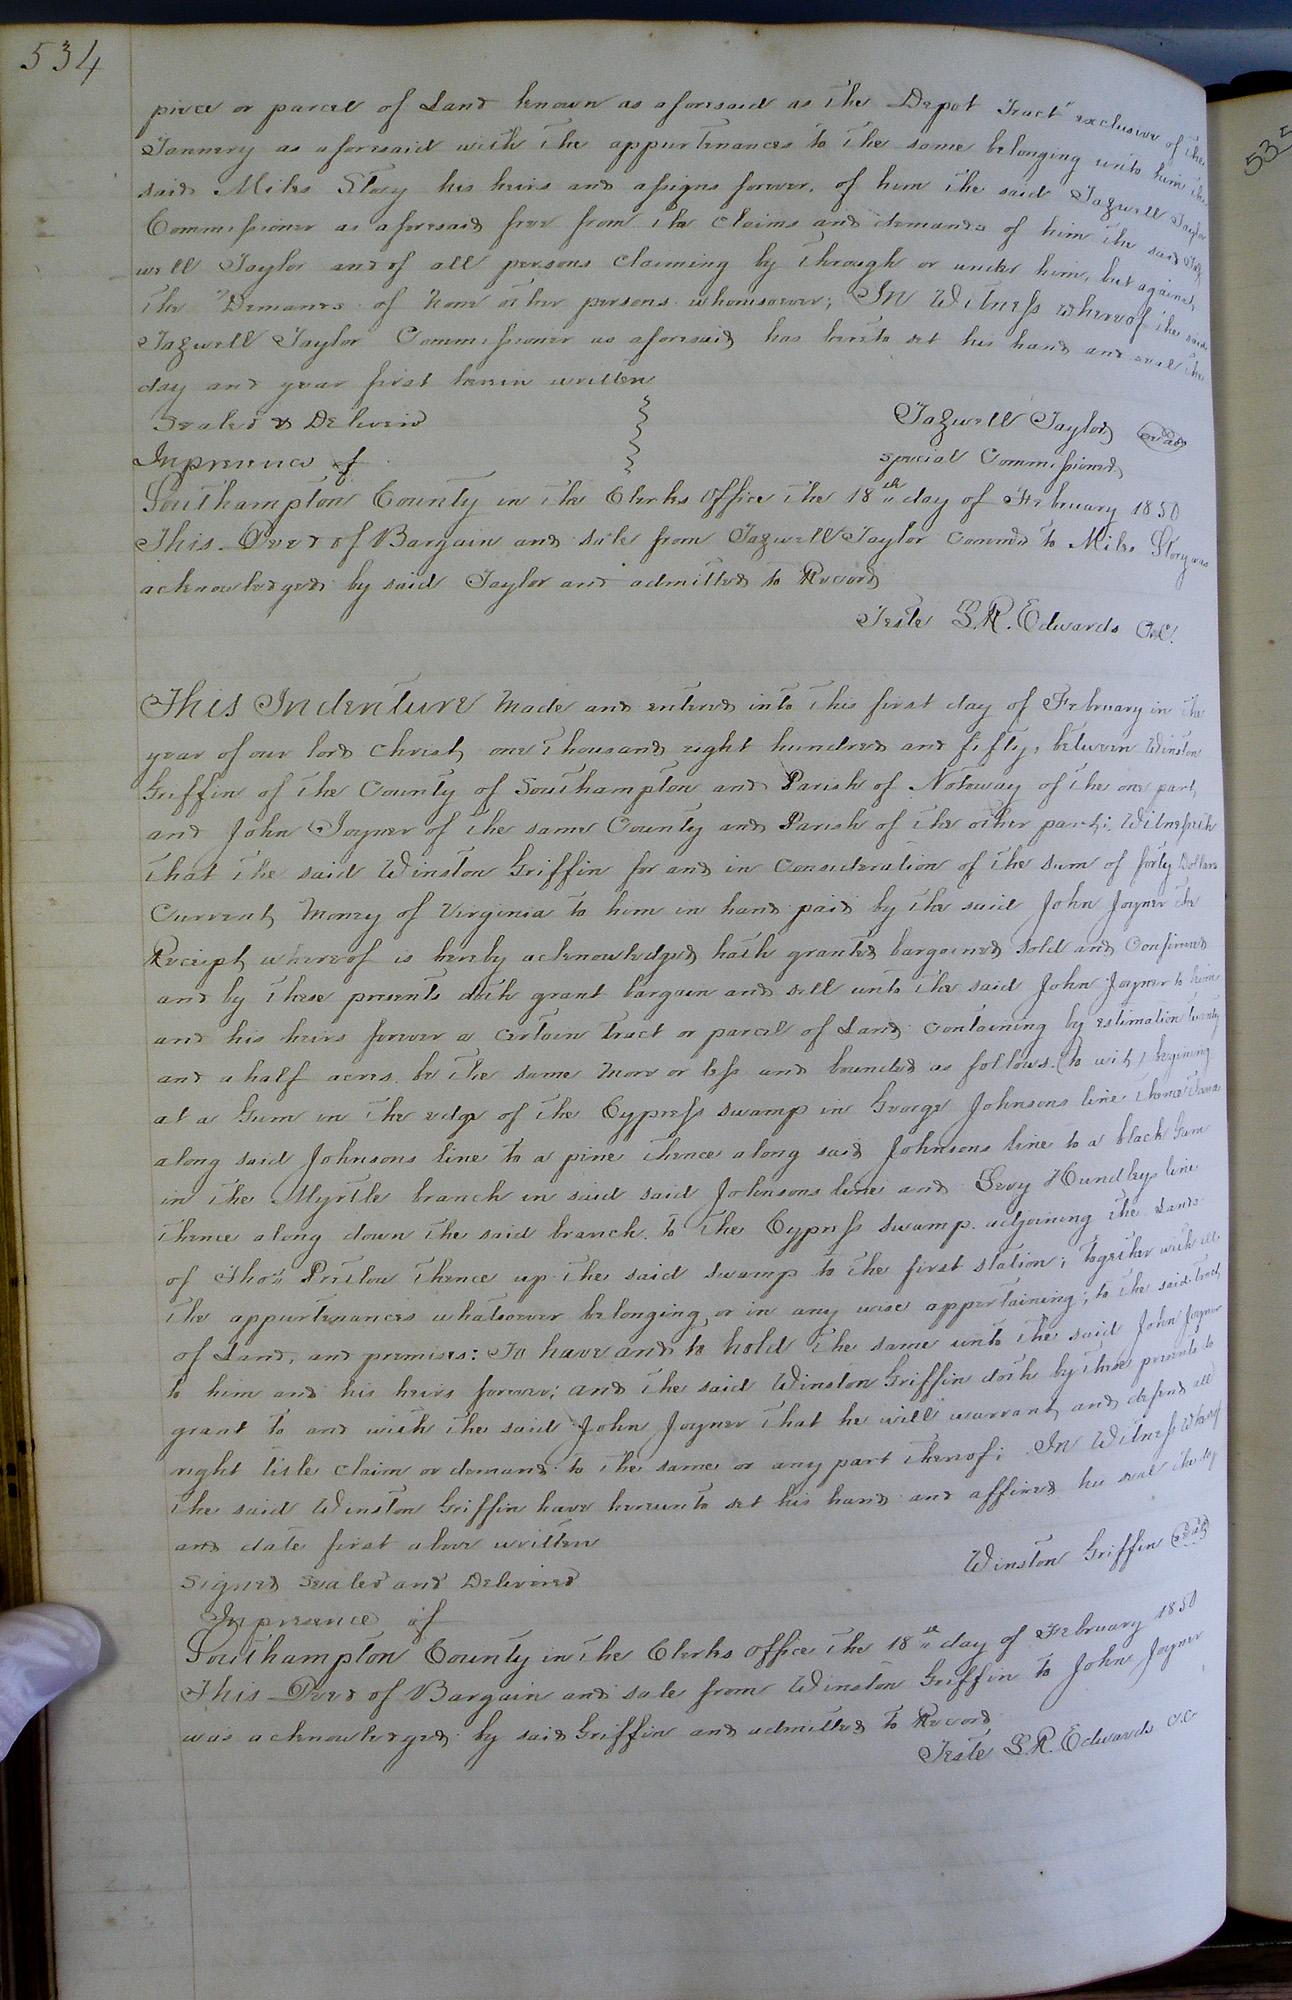 534
535
piece or parcel of Land known as aforesaid as the "Depot Tract" exclusive of the
Tannery as aforesaid with the appurtenances to the same belonging unto him the
said Miles Story his heirs and assigns forever, of him the said Tazwell Taylor
Commissioner as aforesaid free from the Claims and demands of him the said Taz
well Taylor and of all persons claiming by through or under him, but against
the Demands of None other persons whomsoever; In Witness whereof the said
Tazwell Taylor Commissioner as aforesaid has hereto set his hand and seal the
day and year first herein written
Sealed & Deliverd
Tazwell Taylor seal
In presence of
special Commissioner
Southampton County in the Clerks Office the 18th day of February 1850
This Deed of Bargain and sale from Tazwell Taylor Commr to Miles Story was
acknowledged by said Taylor and admitted to Record
Teste L. R. Edwards C.C.
This Indenture Made and entered into this first day of February in the
year of our lord Christ, one thousand eight hundred and fifty, between Winston
Griffin of the County of Southampton and Parish of Notoway of the one part,
and John Joyner of the same County and Parish of the other part; Witnesseth
that the said Winston Griffin for and in Consideration of the sum of forty Dollars
Current Money of Virginia to him in hand paid by the said John Joyner the
Receipt whereof is hereby acknowledged hath granted bargained Sold and Confirmed
and by these presents doth grant bargain and sell unto the said John Joyner to him
and his heirs forever a certain tract or parcel of Land containing by estimation twenty
and a half acres be the same More or less and bounded as follows (to wit) begining
at a Gum in the edge of the Cypress swamp in George Johnsons line thence
along said Johnsons line to a pine thence along said Johnsons line to a black Gum
in the Myrtle branch in said said Johnsons line and Levy Hundleys line
thence along down the said branch to the Cypress swamp adjoining the Lands
of Thos. Pretlow thence up the said swamp to the first station; together with all
the appurtenances whatsoever belonging, or in any wise appertaining; to the said tract
of Land, and premises: To have and to hold the same unto the said John Joyner
to him and his heirs forever; and the said Winston Griffin doth by these presents to
grant to and with the said John Joyner that he will warrant and defend all
right title claim or demand to the same or any part thereof; In Witness Whereof
the said Winston Griffin have hereunto set his hand and affixed his seal the day
and date first above written
Signed Sealed and Delivered
Winston Griffin seal
In presence of
Southampton County in the Clerks office the 18th day of February 1850
This Deed of Bargain and sale from Winston Griffin to John Joyner
was acknowledged by said Griffin and admitted to Record
Teste L. R. Edwards C.C.